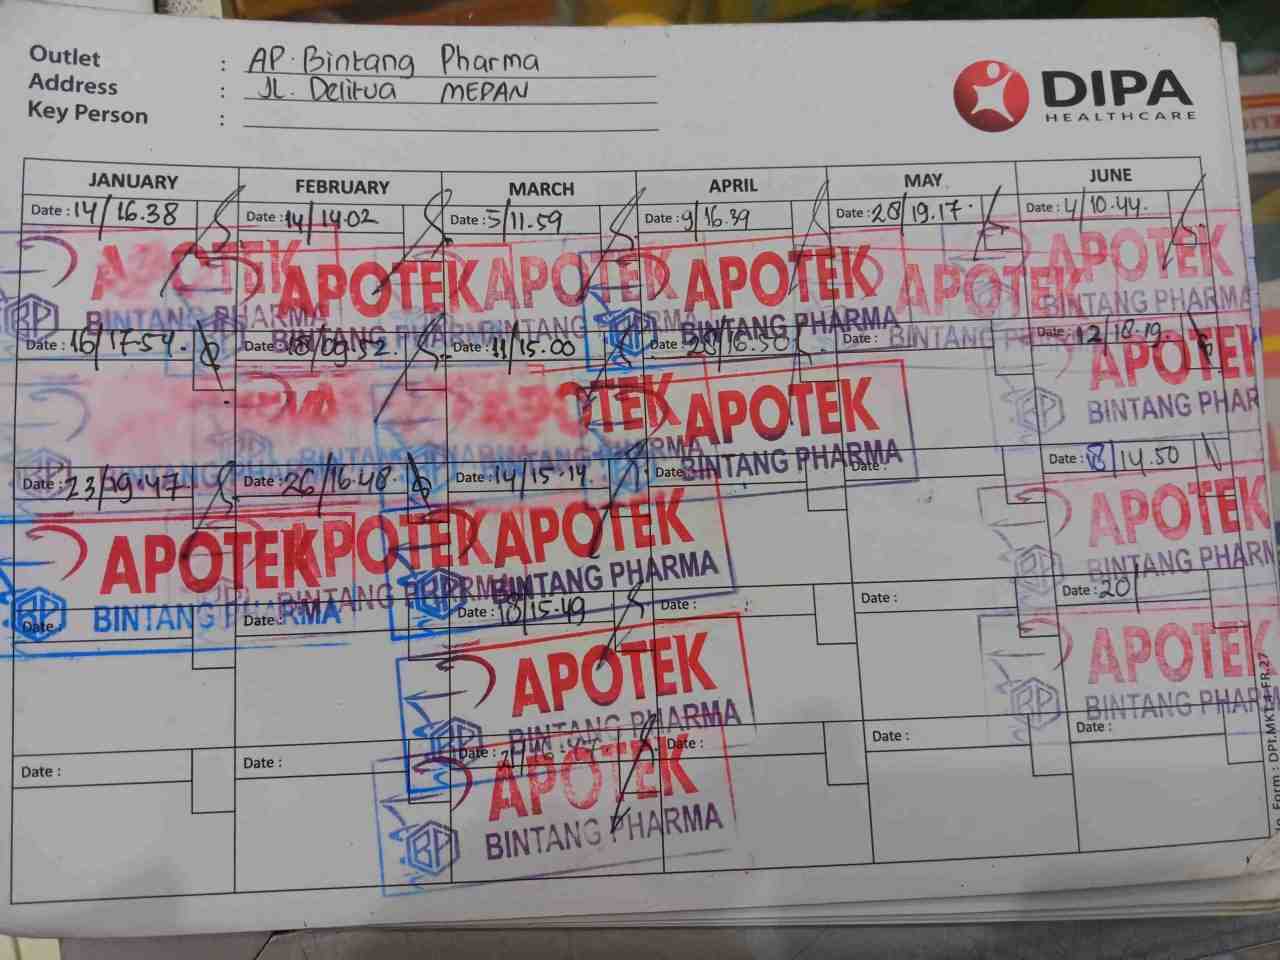 Outlet : AP. Bintang Pharma
Address : JL. Delitua MEDAN
Key Person :
DIPA
HEALTHCARE
JANUARY FEBRUARY MARCH APRIL MAY JUNE
Date : 14/16.38 Date : 14/14.02 Date : 5/11.59 Date : 9/16.39 Date : 28/19.17. Date : 4/10.44.
APOTEK APOTEK APOTEK APOTEK APOTEK APOTEK
BINTANG PHARMA BINTANG PHARMA BINTANG PHARMA BINTANG PHARMA BINTANG PHARMA BINTANG PHARMA
BP BP
Date : 16/17.54. Date : 18/09.52. Date : 11/15.00 Date : 28/16.50 Date : Date : 12/18.19.
TEK APOTEK APOTEK
BINTANG PHARMA BP BINTANG PHAR
Date : 23/19.47 Date : 26/16.48. Date : 14/15.14 Date : Date : Date : 18/14.50
APOTEK APOTEK APOTEK APOTEK
BP BINTANG PHARMA BINTANG PHARMA BINTANG PHARMA BP BINTANG PHARM
Date : Date : Date : 18/15.49 Date : Date : Date : 20/
APOTEK APOTEK
BP BINTANG PHARMA BP BINTANG PHAR
Date : Date : Date : Date : Date : Date :
APOTEK
BP BINTANG PHARMA
Form : DPI.MKT.4-FR.27